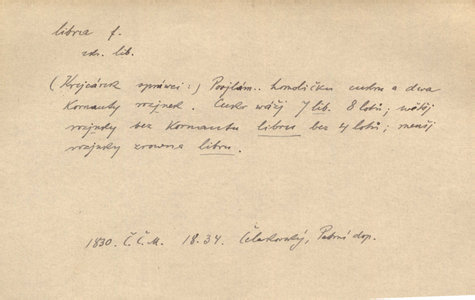 libra f.
zkr. lib.
(Krejcárek správci:) Posýlám.. homoličku cukru a dva
kornouty rozinek. Cukr váží 7 lib. 8 lotů; větší
rozinky bez kornoutu libru bez 4 lotů; menší
rozinky zrovna libru.
1830. Č.Č.M. 18.34. Čelakovský, Patrní dop.